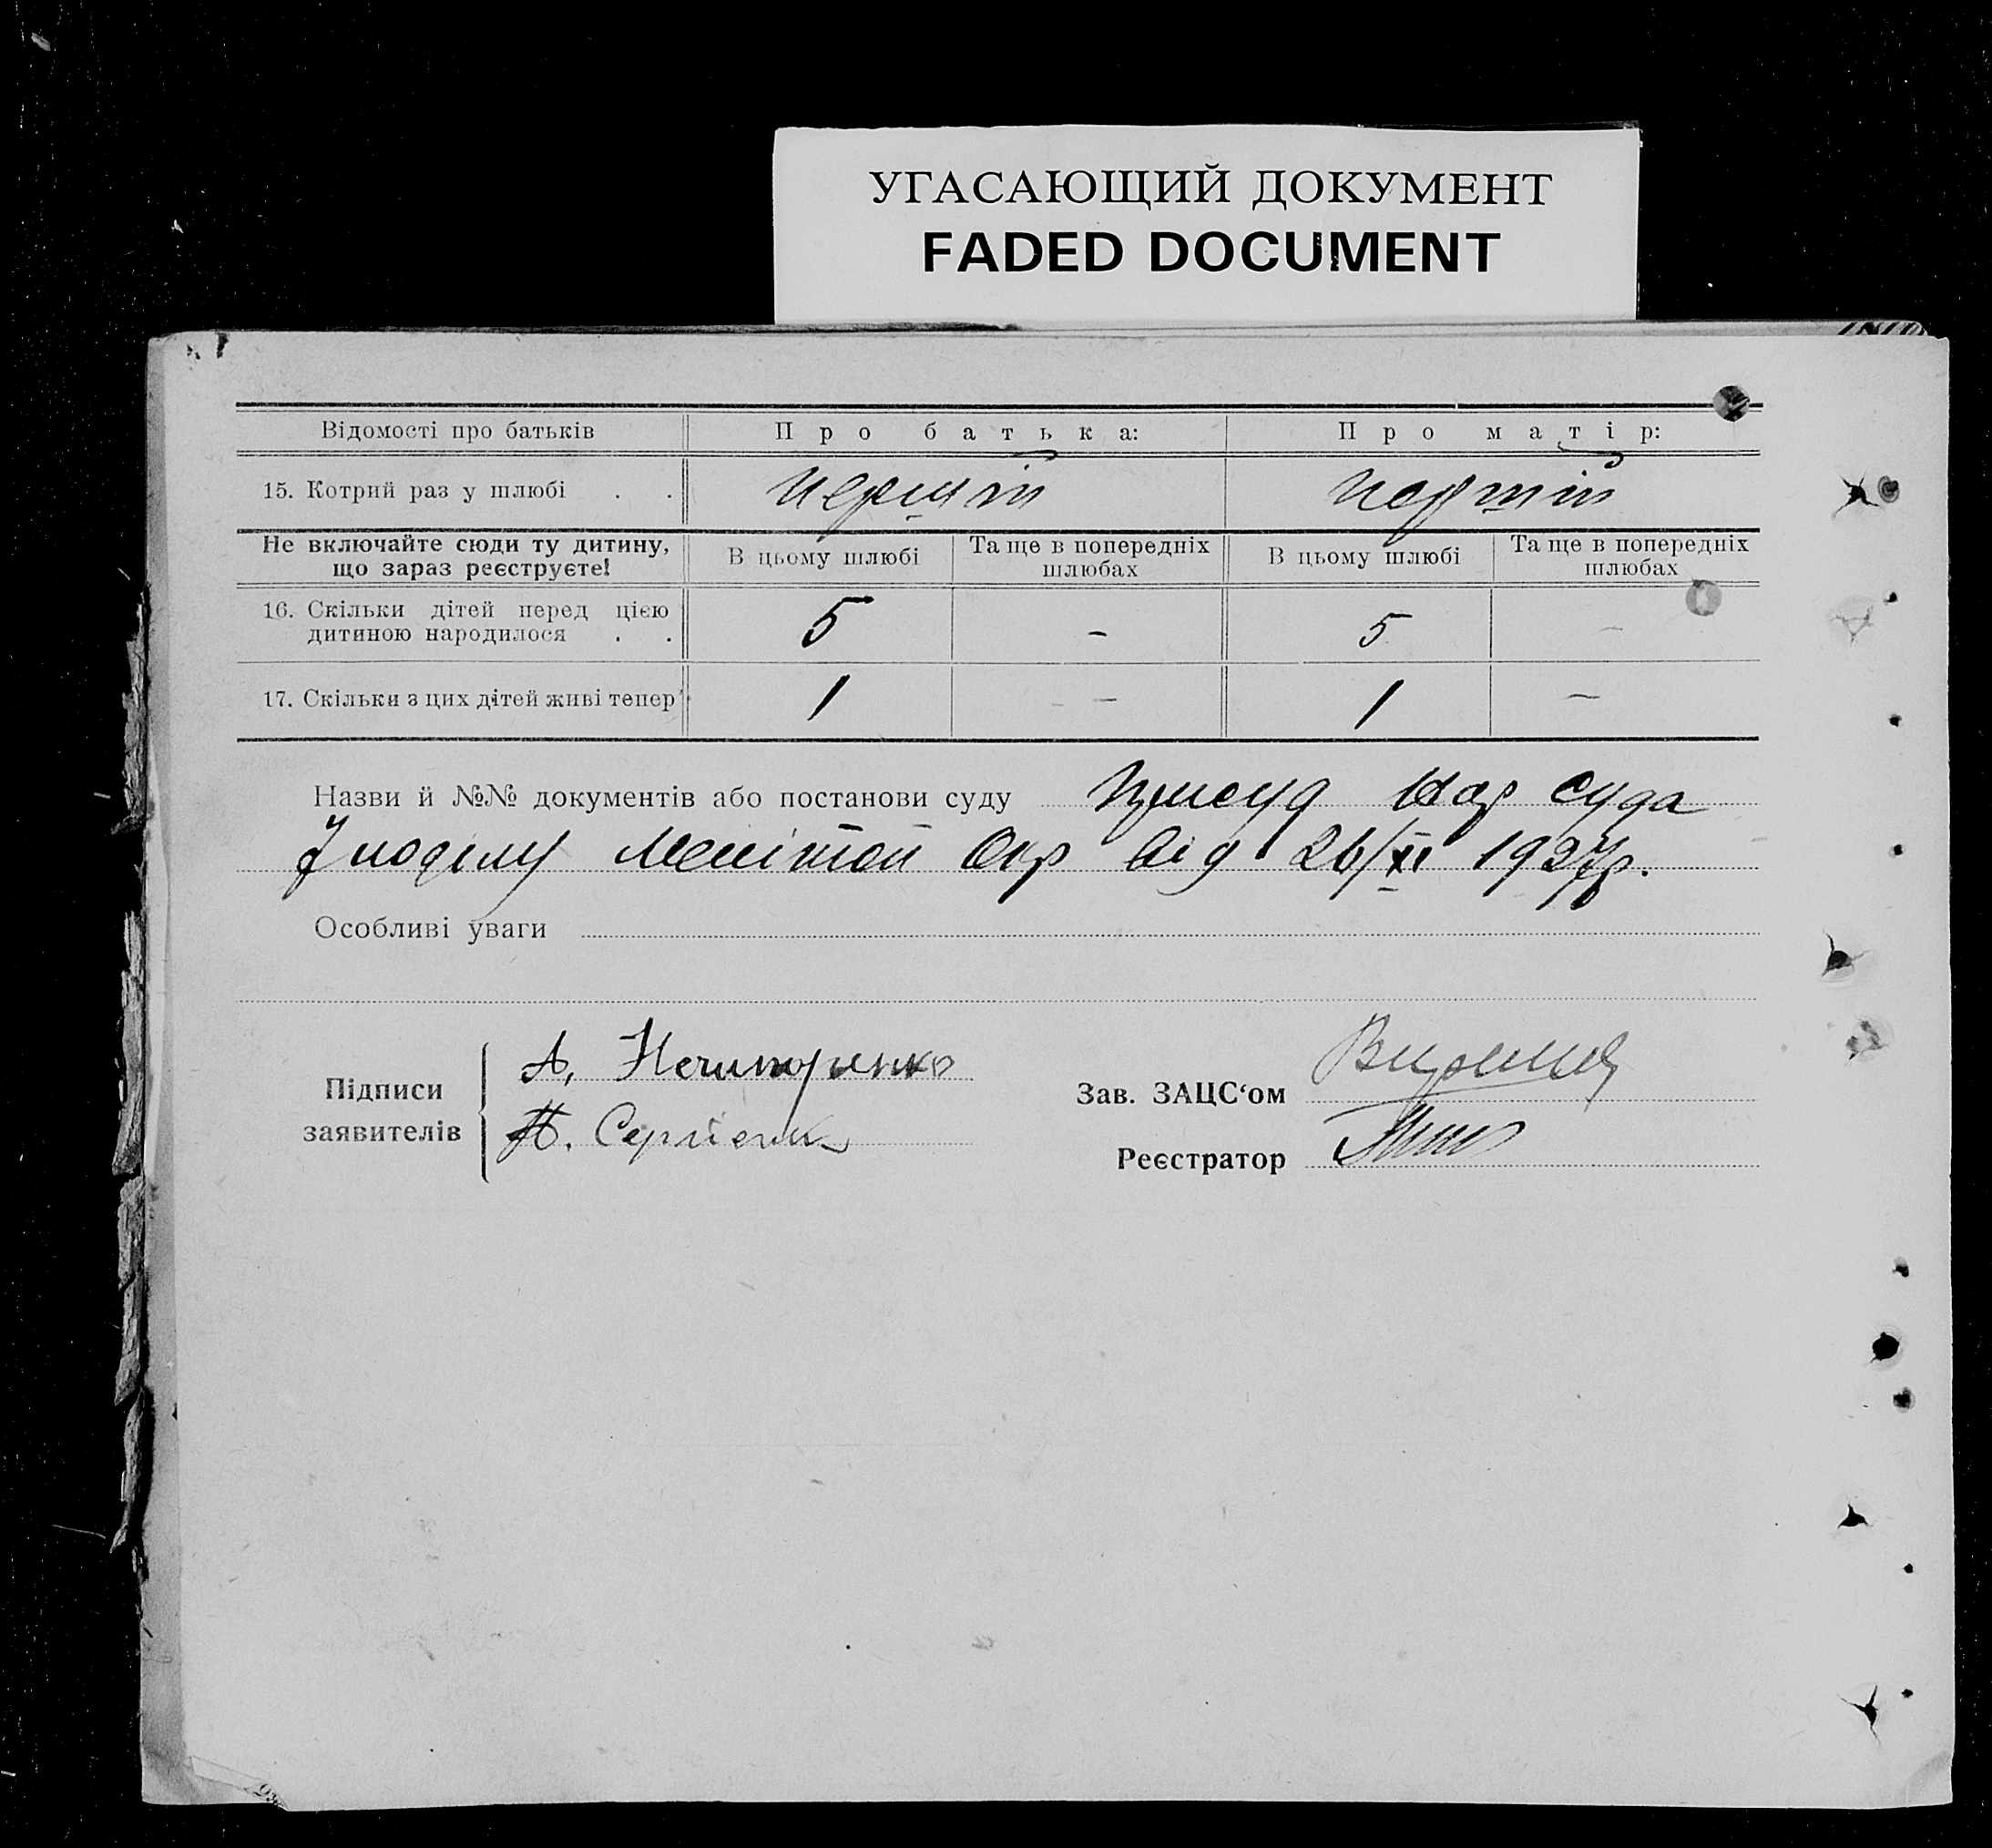 УГАСАЮЩИЙ ДОКУМЕНТ
FADED DOCUMENT
Відомості про батьків Про батька: Про матір:
15. Котрий раз у шлюбі . . Перший Перший
Не включайте сюди ту дитину, що зараз реєструєте! В цьому шлюбі Та ще в попередніх шлюбах В цьому шлюбі Та ще в попередніх шлюбах
16. Скільки дітей перед цією дитиною народилося . . 5 – 5 –
17. Скільки з цих дітей живі тепер 1 – 1 –
Назви й №№ документів або постанови суду Присуд Нар суда
поділу Меліт Окр від 26/XI 1927р.
Особливі уваги
Підписи заявителів
А. Нечипоренко
Сергіенк
Зав. ЗАЦС‘ом
Реєстратор